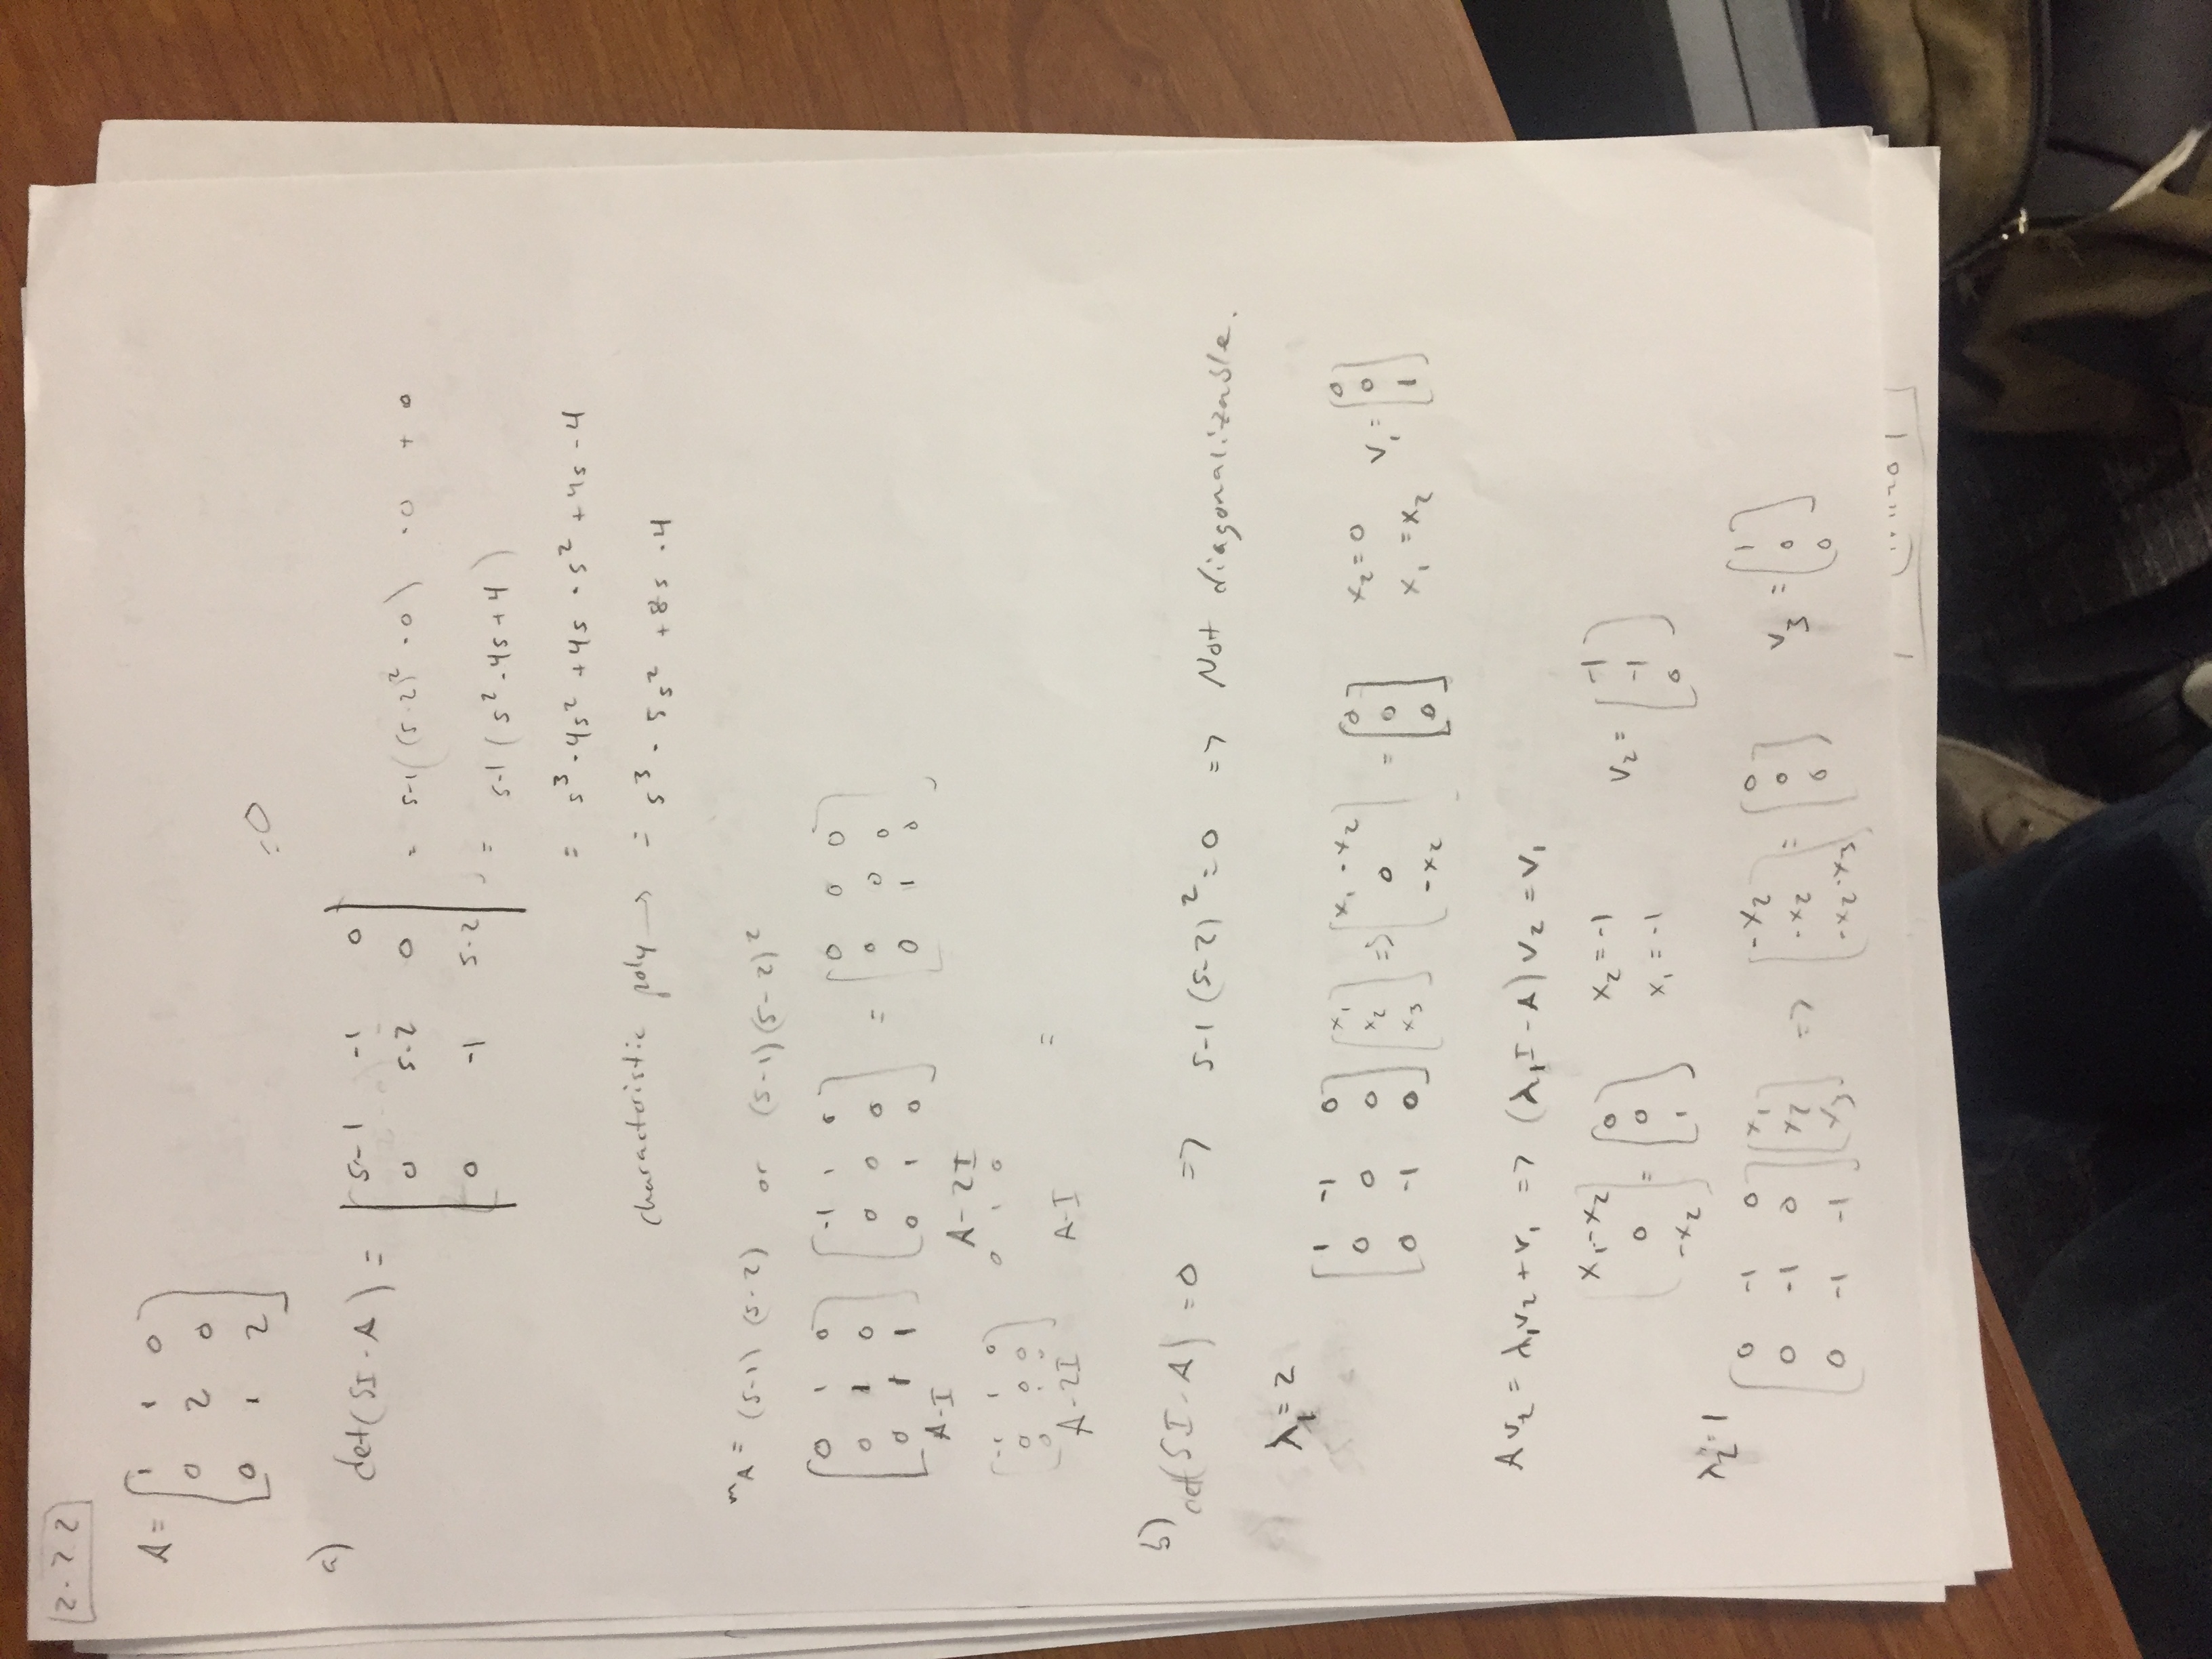 2.22
A = [1 1 0
0 2 0
0 1 2]
=0
a) det(SI-A) = |s-1 -1 0
0 s-2 0
0 -1 s-2|
= s-1((s-2)² - 0) - 0 + 0
= s-1(s² - 4s + 4)
= s³ - 4s² + 4s - s² + 4s - 4
characteristic poly → = s³ - 5s² + 8s - 4
m_A = (s-1)(s-2) or (s-1)(s-2)²
[0 1 0] [-1 1 0] = [0 0 0]
[0 1 0] [0 0 0] [0 0 0]
[0 1 1] [0 1 0] [0 1 0]
A-I A-2I
[-1 1 0] 0 1 0
[0 0 0]
A-2I A-I =
b) det(SI-A) = 0 => s-1(s-2)² = 0 => Not diagonalizable.
λ₁ = 2
[1 -1 0] [x₁] => [x₁ - x₂] = [0] x₂ = 0 v₁ = [0]
[0 0 0] [x₂] [0] [0] x₁ = x₂ [0]
[0 -1 0] [x₃] [-x₂] [0] [1]
Av₂ = λ₁v₂ + v₁ => (λ₁I - A)v₂ = v₁
[x₁-x₂] = [0] x₂ = -1 v₂ = [-1]
[0] [0] x₁ = -1 [-1]
[-x₂] [1] [0]
λ₂ = 1
[0 -1 0] [x₁] => [-x₂] = [0] v₃ = [1]
[0 -1 0] [x₂] [-x₂] [0] [0]
[0 -1 -1] [x₃] [-x₂-x₃] [0] [0]